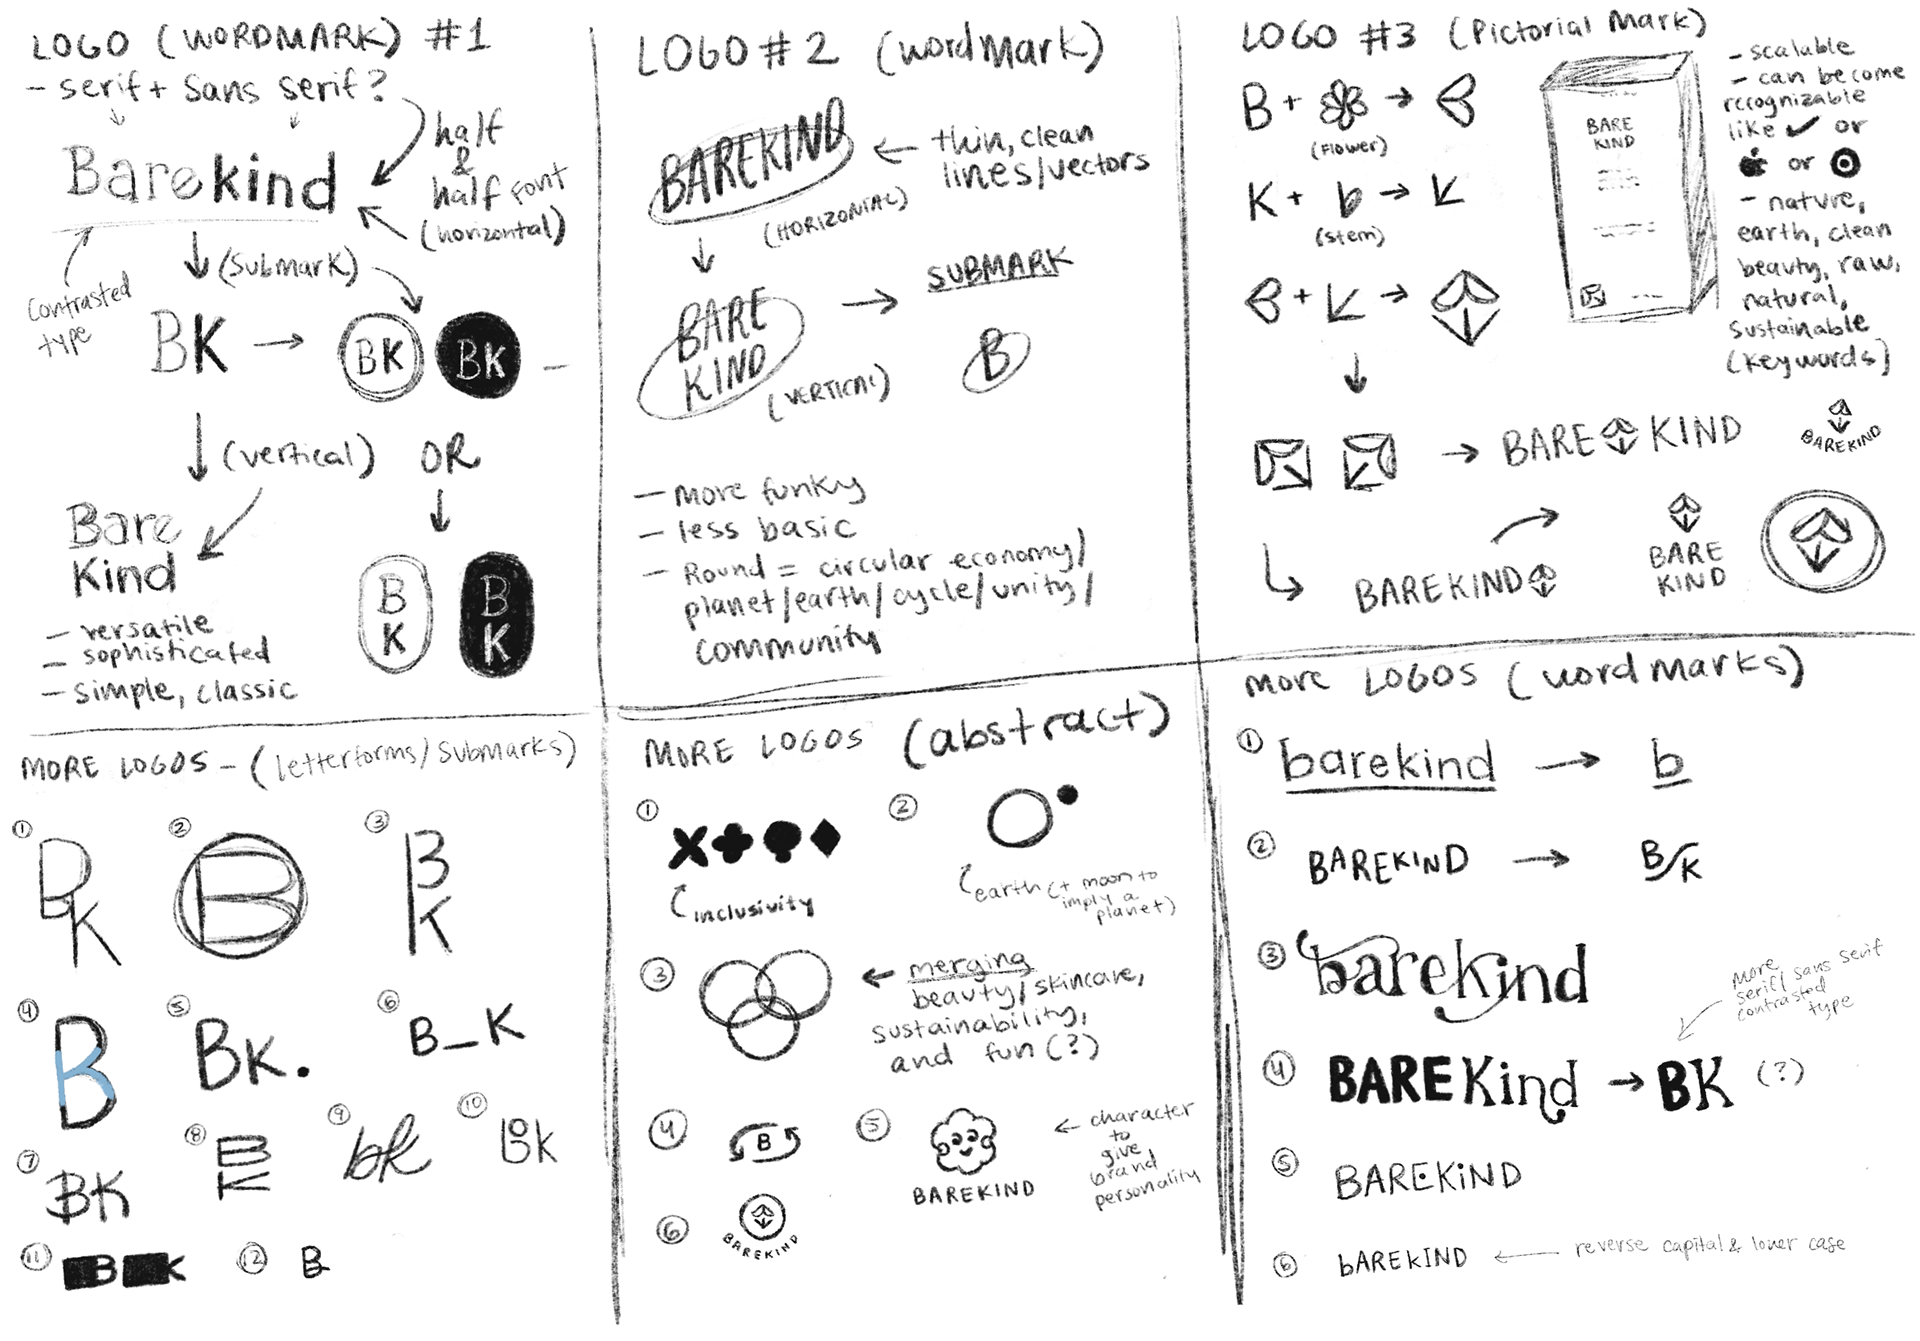 LOGO (WORDMARK) #1
- serif + sans serif?
half
&
half font
(horizontal)
Barekind
(submark)
contrasted
type
BK
BK
BK
(vertical)
OR
Bare
Kind
B
K
B
K
- versatile
- sophisticated
- simple, classic
LOGO #2 (wordmark)
BAREKIND
thin, clean
lines/vectors
(HORIZONTAL)
BARE
KIND
(VERTICAL)
SUBMARK
B
- more funky
- less basic
- Round = circular economy/
planet/earth/cycle/unity/
community
LOGO #3 (Pictorial Mark)
B +
(flower)
K +
(stem)
+
BARE
KIND
- scalable
- can become
recognizable
like or
or
- nature,
earth, clean
beauty, raw,
natural,
sustainable
(keywords)
BARE KIND
BAREKIND
BAREKIND
BARE
KIND
MORE LOGOS - (letterforms/submarks)
1
BK
2
B
3
BK
4
B
5
BK.
6
B_K
7
BK
8
BK
9
bk
10
Bk
11
BK
12
B
MORE LOGOS (abstract)
1
inclusivity
2
earth (+ moon to
imply a
planet)
3
merging
beauty/skincare,
sustainability,
and fun (?)
4
B
5
BAREKIND
character
to
give
brand
personality
6
BAREKIND
more LOGOS (wordmarks)
1
barekind
b
2
BAREKIND
B/K
3
barekind
more
serif/sans serif
contrasted
type
4
BAREKind
BK (?)
5
BAREKiND
6
bAREkIND
reverse capital & lower case